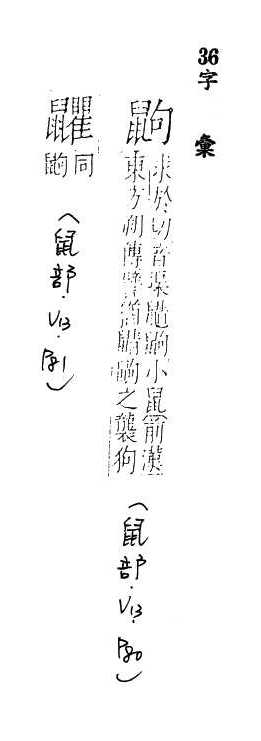 36字彙
鼩
求於切音渠鼱鼩小鼠前漢
東方朔傳譬猶鼱鼩之襲狗
(鼠部.V13.P80)
同
鼩
(鼠部.V13.P81)